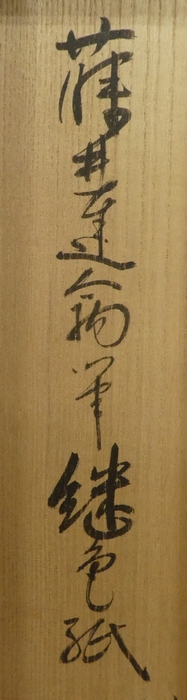 藤井達翁筆継色紙